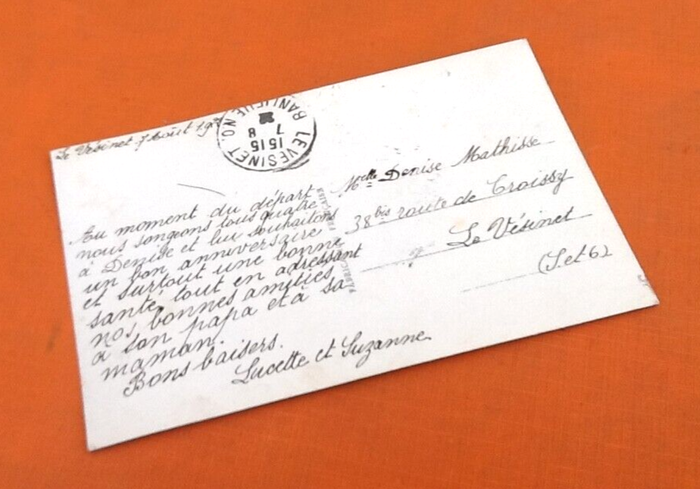 Le Vésinet 7 Août
LE VESINET
BANLIEUE NO.
1515
7 8
Au moment du départ
nous songeons tous quatre
à Denise et lui souhaitons
un bon anniversaire
et surtout une bonne
santé, tout en adressant
nos bonnes amitiés
à son papa et à sa
maman.
Bons baisers.
Lucette et Suzanne
Melle Denise Mathisse
38bis route de Croissy
Le Vésinet
(S. et O.)